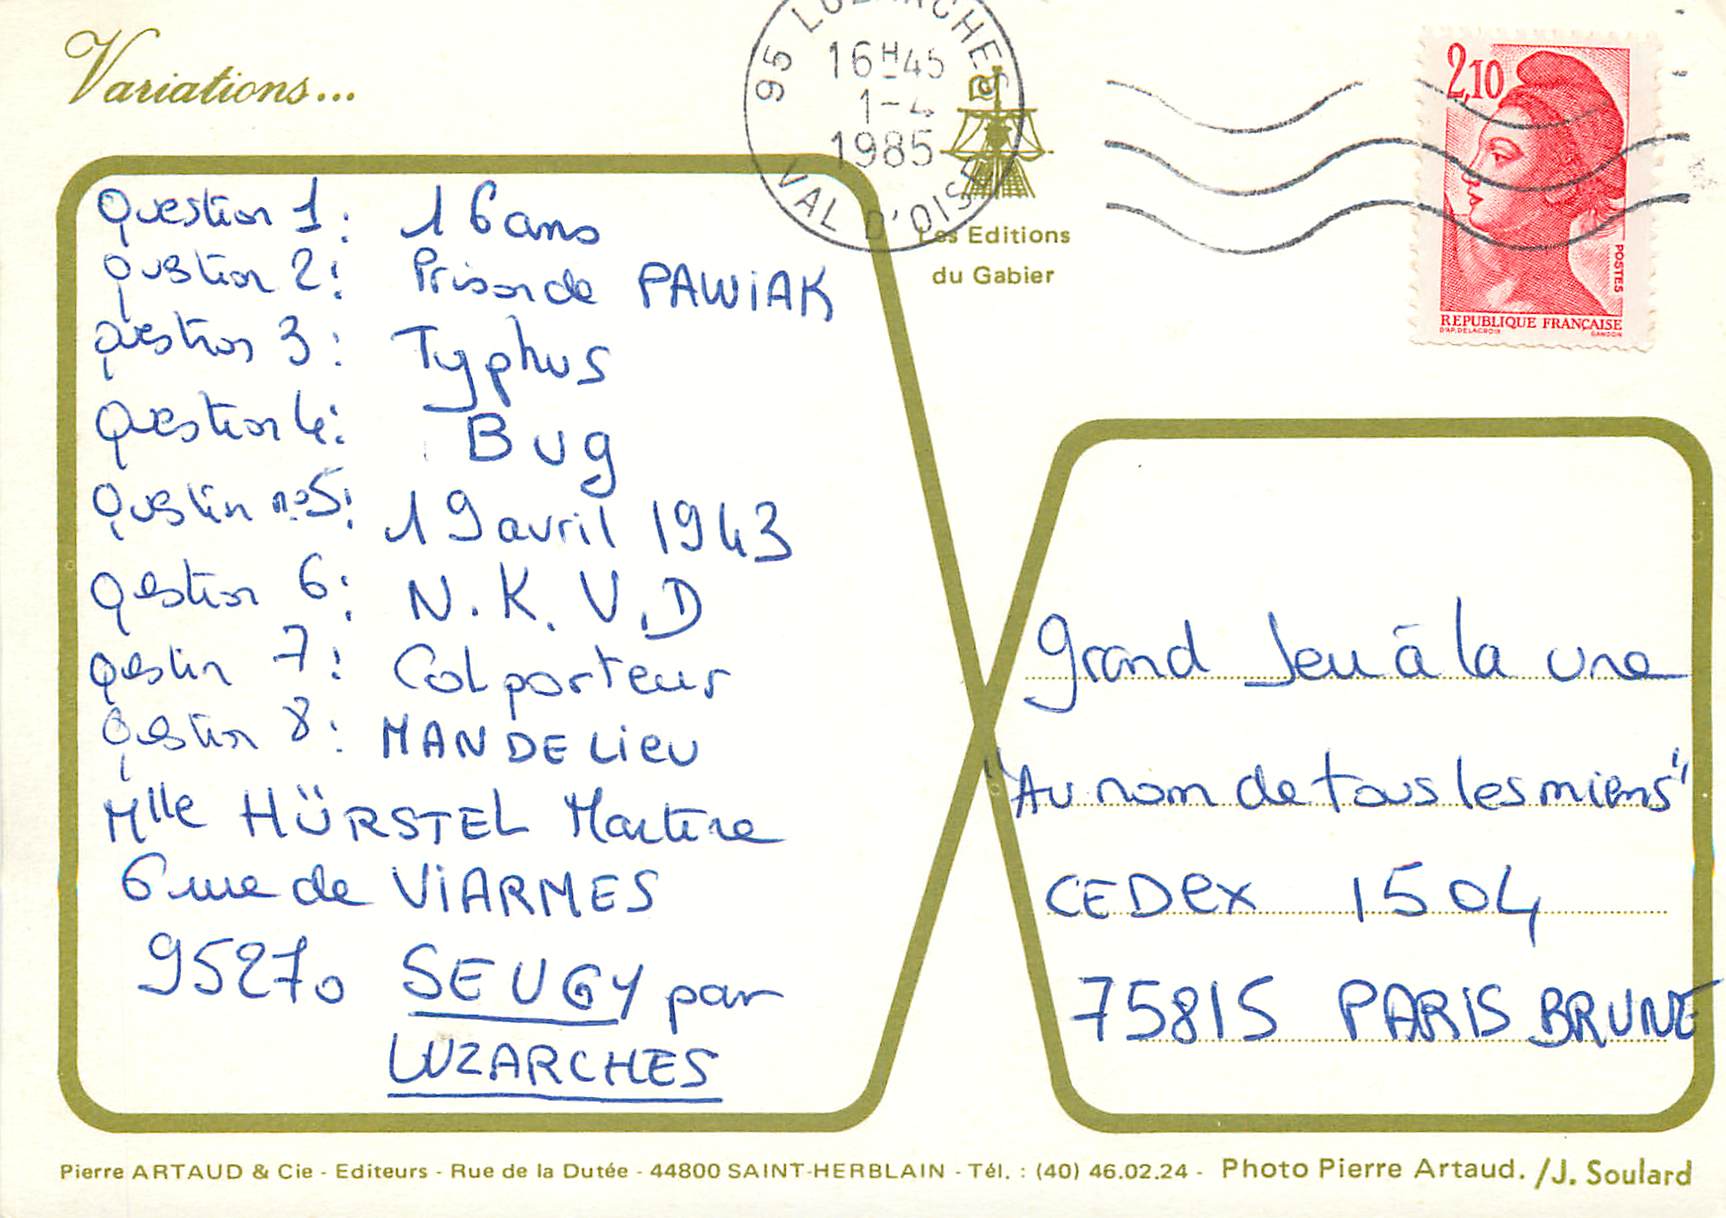 Variations...
95 LUZARCHES
16H45
1-4
1985
VAL D'OISE
Les Editions
du Gabier
2,10
POSTES
REPUBLIQUE FRANÇAISE
D'AP. DELACROIX GANDON
Question 1: 16 ans
Question 2: Prison de PAWiAK
Question 3: Typhus
Question 4: Bug
Question n°5: 19 avril 1943
Qestion 6: N.K.V.D
Qestion 7: Colporteur
Qestion 8: MANDELieu
Mlle HÜRSTEL Martine
6 rue de ViARMES
95270 SEUGY par
LUZARCHES
Grand Jeu à la une
"Au nom de tous les miens"
CEDex 1504
75815 PARIS BRUNE
Pierre ARTAUD & Cie - Editeurs - Rue de la Dutée - 44800 SAINT-HERBLAIN - Tél. : (40) 46.02.24 - Photo Pierre Artaud. /J. Soulard